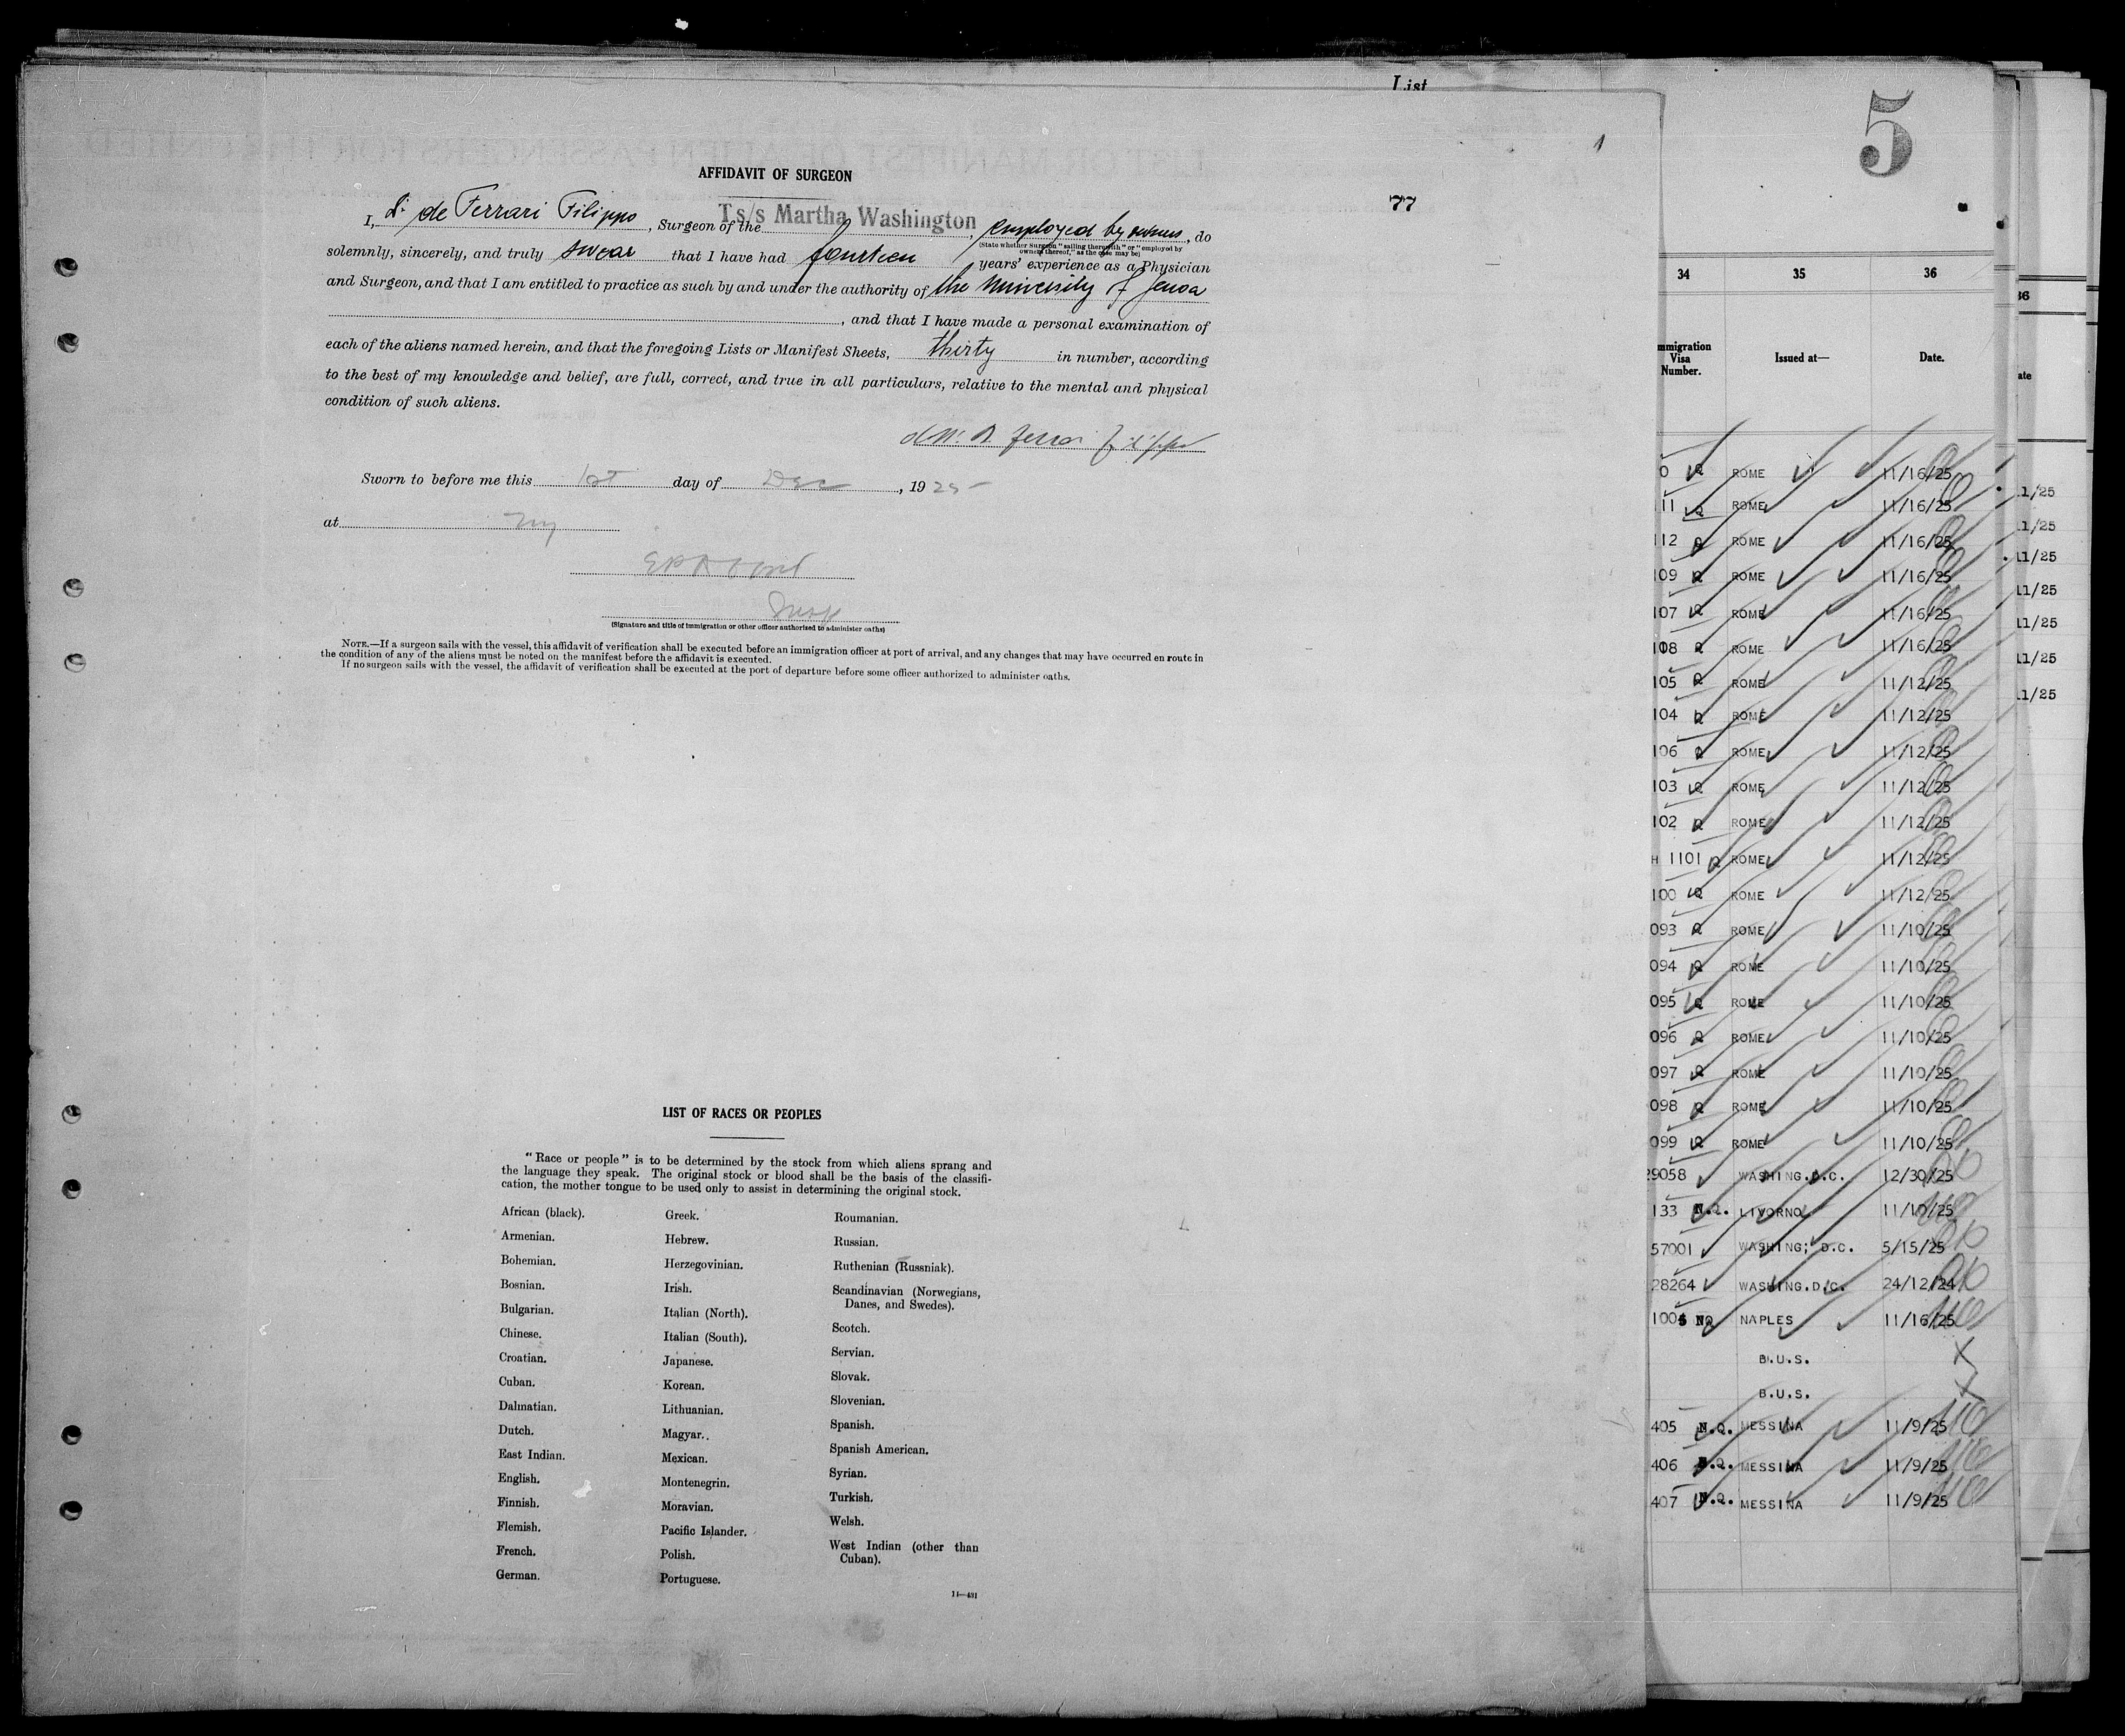 List
5
1
77
AFFIDAVIT OF SURGEON
I, Dr de Ferrari Filippo, Surgeon of the T.s/s Martha Washington, employed by owners, do
(State whether Surgeon "sailing therewith" or "employed by
owners thereof," as the case may be)
solemnly, sincerely, and truly swear that I have had fourteen years' experience as a Physician
and Surgeon, and that I am entitled to practice as such by and under the authority of the University of Genoa
, and that I have made a personal examination of
each of the aliens named herein, and that the foregoing Lists or Manifest Sheets, thirty in number, according
to the best of my knowledge and belief, are full, correct, and true in all particulars, relative to the mental and physical
condition of such aliens.
Ferrari Filippo
Sworn to before me this 1st day of Dec, 1925
at NY
Insp
(Signature and title of immigration or other officer authorized to administer oaths)
NOTE.—If a surgeon sails with the vessel, this affidavit of verification shall be executed before an immigration officer at port of arrival, and any changes that may have occurred en route in
the condition of any of the aliens must be noted on the manifest before the affidavit is executed.
If no surgeon sails with the vessel, the affidavit of verification shall be executed at the port of departure before some officer authorized to administer oaths.
LIST OF RACES OR PEOPLES
"Race or people" is to be determined by the stock from which aliens sprang and
the language they speak. The original stock or blood shall be the basis of the classifi-
cation, the mother tongue to be used only to assist in determining the original stock.
African (black).
Armenian.
Bohemian.
Bosnian.
Bulgarian.
Chinese.
Croatian.
Cuban.
Dalmatian.
Dutch.
East Indian.
English.
Finnish.
Flemish.
French.
German.
Greek.
Hebrew.
Herzegovinian.
Irish.
Italian (North).
Italian (South).
Japanese.
Korean.
Lithuanian.
Magyar.
Mexican.
Montenegrin.
Moravian.
Pacific Islander.
Polish.
Portuguese.
Roumanian.
Russian.
Ruthenian (Russniak).
Scandinavian (Norwegians,
Danes, and Swedes).
Scotch.
Servian.
Slovak.
Slovenian.
Spanish.
Spanish American.
Syrian.
Turkish.
Welsh.
West Indian (other than
Cuban).
14—431
34 35 36
mmigration
Visa
Number.
Issued at—
Date.
0 Q ROME 11/16/25
11 Q ROME 11/16/25
112 Q ROME 11/16/25
109 Q ROME 11/16/25
107 Q ROME 11/16/25
108 Q ROME 11/16/25
105 Q ROME 11/12/25
104 Q ROME 11/12/25
106 Q ROME 11/12/25
103 Q ROME 11/12/25
102 Q ROME 11/12/25
H 1101 Q ROME 11/12/25
100 Q ROME 11/12/25
093 Q ROME 11/10/25
094 Q ROME 11/10/25
095 Q ROME 11/10/25
096 Q ROME 11/10/25
097 Q ROME 11/10/25
098 Q ROME 11/10/25
099 Q ROME 11/10/25
29058 WASHING.D.C. 12/30/25
133 N.Q. LIVORNO 11/10/25
57001 WASHING; D.C. 5/15/25
28264 WASHING.D.C. 24/12/24
1004 NQ NAPLES 11/16/25
B.U.S.
B.U.S.
405 N.Q. MESSINA 11/9/25
406 N.Q. MESSINA 11/9/25
407 N.Q. MESSINA 11/9/25
36
ate
11/25
11/25
11/25
11/25
11/25
11/25
11/25